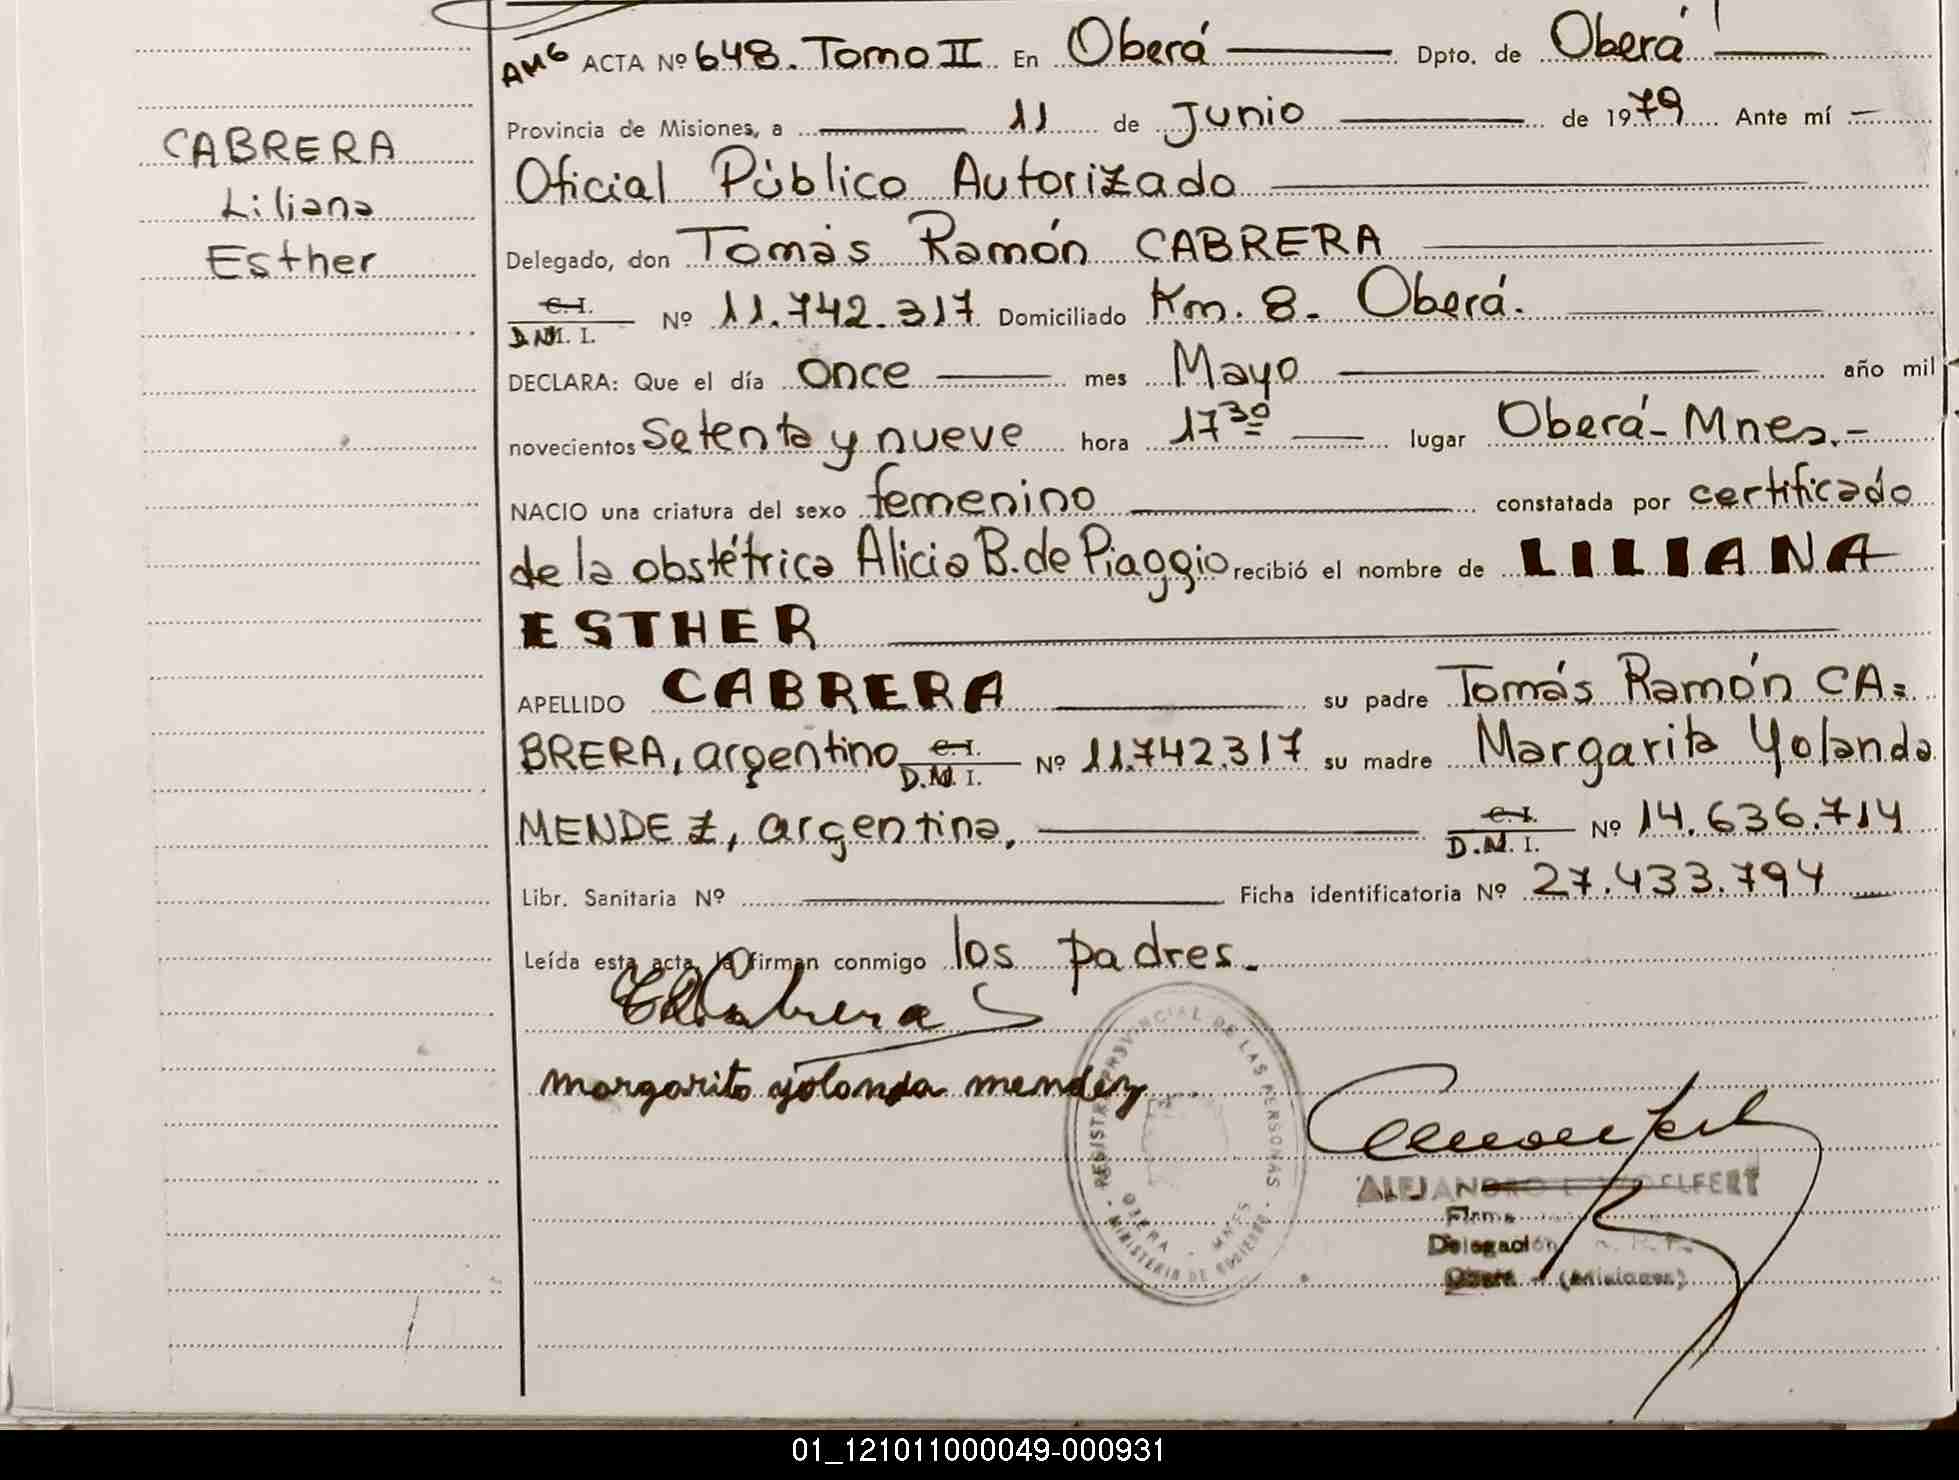 CABRERA
Liliana
Esther
AMG ACTA Nº 648. Tomo II En Oberá Dpto. de Oberá
Provincia de Misiones, a 11 de Junio de 1979 Ante mí
Oficial Público Autorizado
Delegado, don Tomás Ramón CABRERA
C.I.
D.N.I. Nº 11.742.317 Domiciliado Km. 8. Oberá.
DECLARA: Que el día once mes Mayo año mil
novecientos Setenta y nueve hora 17 30 lugar Oberá - Mnes.-
NACIO una criatura del sexo femenino constatada por certificado
de la obstétrica Alicia B. de Piaggio recibió el nombre de LILIANA
ESTHER
APELLIDO CABRERA su padre Tomás Ramón CA=
BRERA, argentino C.I. D.N.I. Nº 11.742.317 su madre Margarita Yolanda
MENDEZ, argentina, C.I. D.N.I. Nº 14.636.714
Libr. Sanitaria Nº Ficha identificatoria Nº 27.433.794
Leída esta acta, la firman conmigo los padres.-
TRCabrera
margarita yolanda mendez
REGISTRO PROVINCIAL DE LAS PERSONAS
OBERA - MNES
MINISTERIO DE GOBIERNO
ALEJANDRO E. WOELFERT
Firma
Delegación R. P.
Oberá - (Misiones)
01_121011000049-000931